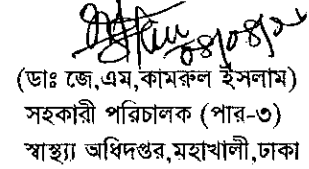 ০৪/০৪/২১
(ডাঃ জে,এম,কামরুল ইসলাম)
সহকারী পরিচালক (পার-৩)
স্বাস্থ্যা অধিদপ্তর,মহাখালী,ঢাকা